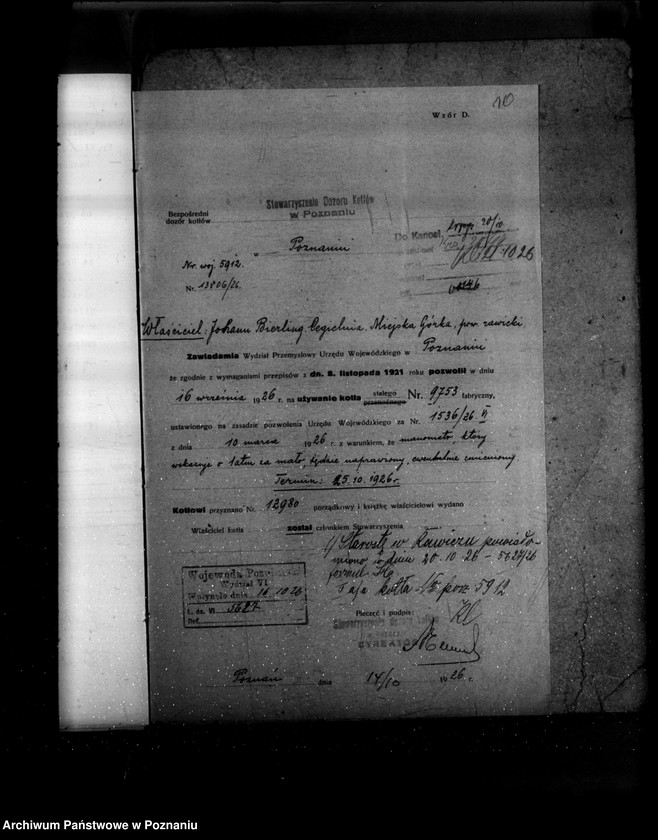 10
Wzór D.
Stowarzyszenie Dozoru Kotłów
w Poznaniu
Bezpośredni
dozór kotłów
w Poznaniu
Do Kancel. 20/10
1026
Nr. woj. 5912.
Nr. 13806/26.
Właściciel: Johann Bierling, Cegielnia, Miejska Górka, pow. rawicki
Zawiadamia Wydział Przemysłowy Urzędu Wojewódzkiego w Poznaniu
że zgodnie z wymaganiami przepisów z dn. 8. listopada 1921 roku pozwolił w dniu
16 września 1926 r. na używanie kotła stałego przenośnego Nr. 9753 fabryczny,
ustawionego na zasadzie pozwolenia Urzędu Wojewódzkiego za Nr. 1536/26 VI
z dnia 10 marca 1926 r. z warunkiem, że manometr, który
wskazuje o 1 atm za mało, będzie naprawiony, ewentualnie zmieniony
Termin: 25.10.1926 r.
Kotłowi przyznano Nr. 12980 porządkowy i książkę właścicielowi wydano
Właściciel kotła został członkiem Stowarzyszenia
1/ Starostę w Rawiczu powiado-
miono w dniu 20.10.26 - 5627/26
formul.
kotła 5912
Wojewoda Pozn
Wydział VI
Wpłynęło dnia 16 10 26
L. dz. VI 5627
Ref.
Pieczęć i podpis:
Stowarzyszenie Dozoru Kotłów
DYREKTOR
Poznań dnia 14/10 1926 r.
Archiwum Państwowe w Poznaniu